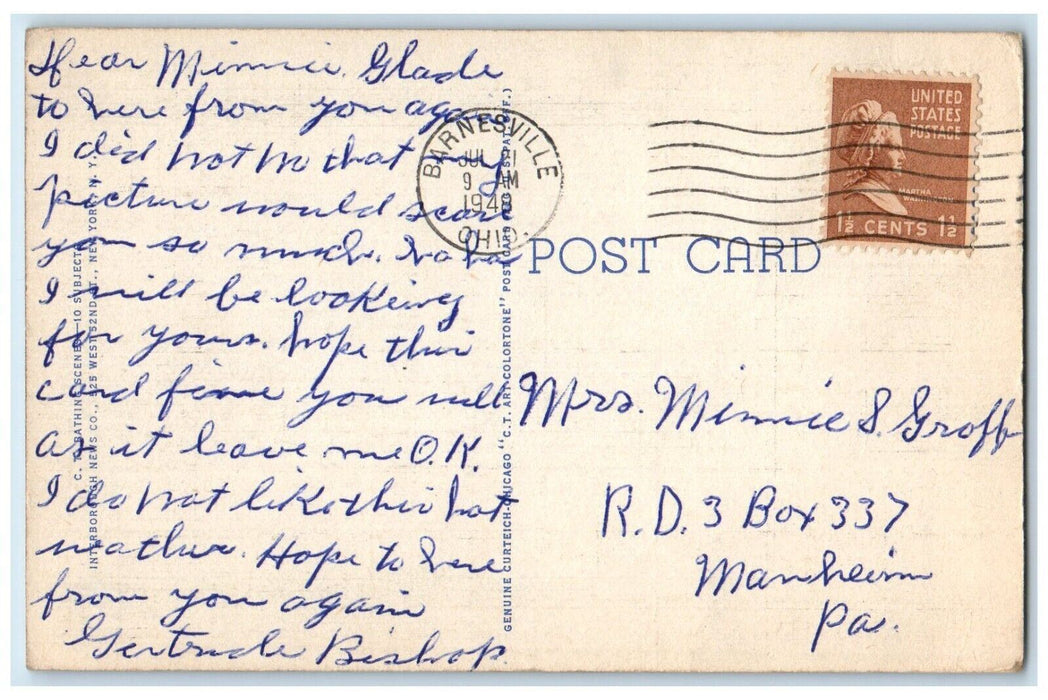 Dear Minnie. Glade
to here from you again
I did not no that my
picture would scare
you so much. ha ha
I will be looking
for yours. hope this
card fine you well
as it leave me O.K.
I do not like this hot
weather. Hope to here
from you again
Gertrude Bishop.
C. T. BATHING SCENES—10 SUBJECTS
INTERBOROUGH NEWS CO., 525 WEST 52ND ST., NEW YORK N. Y.
GENUINE CURTEICH-CHICAGO "C. T. ART-COLORTONE" POST CARD (REG. U.S. PAT. OFF.)
BARNESVILLE
JUL 21
9 AM
1948
OHIO
UNITED
STATES
POSTAGE
MARTHA
WASHINGTON
1½ CENTS 1½
POST CARD
Mrs. Minnie S. Groff
R.D. 3 Box 337
Manheim
Pa.